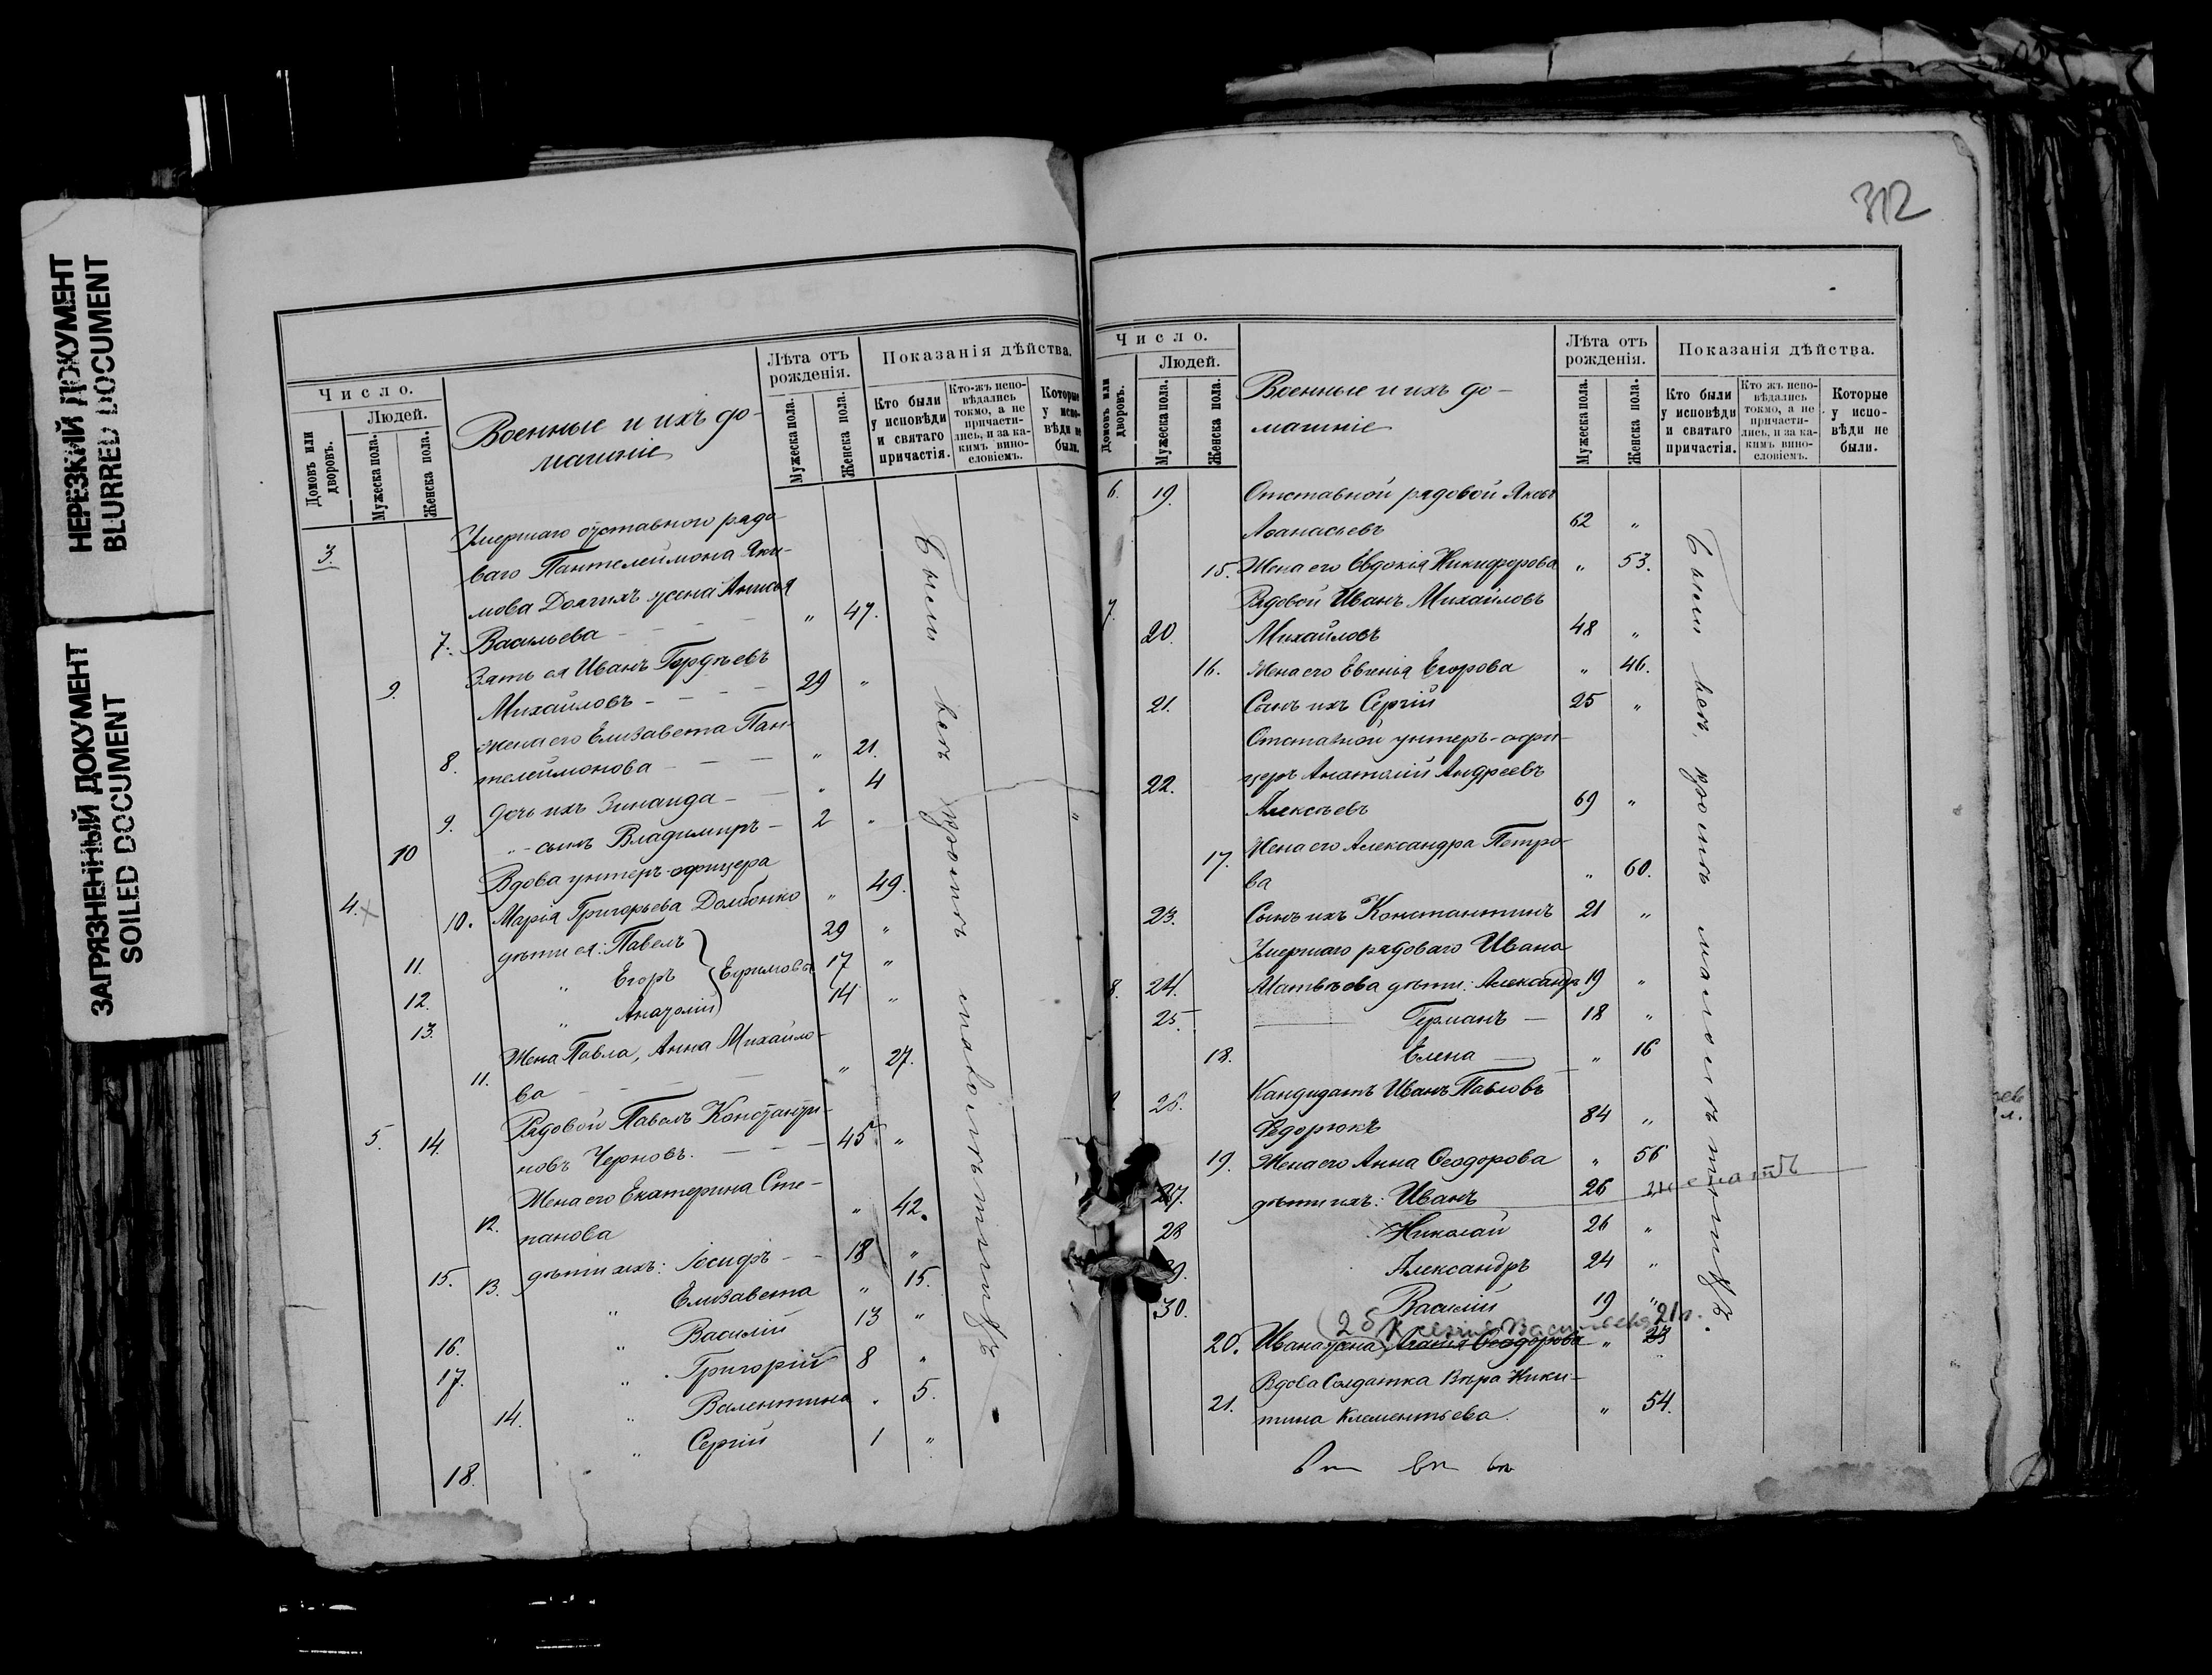 НЕРЕЗКИЙ ДОКУМЕНТ
BLURRED DOCUMENT
ЗАГРЯЗНЕННЫЙ ДОКУМЕНТ
SOILED DOCUMENT
Число.
Людей.
Домовъ или дворовъ.
Мужеска пола.
Женска пола.
Военные и ихъ до-
машніе
Лѣта отъ рожденія.
Мужеска пола.
Женска пола.
Показанія дѣйства.
Кто были у исповѣди и святаго причастія.
Кто-жъ исповѣдались токмо, а не причастились, и за какимъ винословіемъ.
Которые у исповѣди не были.
3. Умершаго отставного рядо-
ваго Пантелеймона Яки-
мова Долгихъ жена Анисья
7. Васильева - - - " 47.
9. Зять ея Иванъ Гордѣевъ
Михайловъ - - - 29 "
8. Жена его Елизавета Пан-
телеймонова - - - " 21.
9. Дочь ихъ Зинаида - - " 4
10 " - сынъ Владимиръ - 2 "
Вдова унтеръ-офицера
4. 10. Марія Григорьева Долбонко " 49.
11. дѣти ея: Павелъ } Ефимовы 29 "
12. " Егоръ 17 "
13. " Анатолій 14 "
11. Жена Павла, Анна Михайло-
ва - - - " 27.
5. 14. Рядовой Павелъ Константи-
новъ Черновъ. - - - 45 "
12. Жена его Екатерина Сте-
панова " 42.
15. дѣти ихъ: Іосифъ - - 18 "
13. " Елизавета " 15.
16. " Василій 13 "
17. " Григорій 8 "
14. " Валентина " 5.
18. " Сергій 1 "
Были всѣ кромѣ малолѣтнихъ
312
Число.
Людей.
Домовъ или дворовъ.
Мужеска пола.
Женска пола.
Военные и ихъ до-
машніе
Лѣта отъ рожденія.
Мужеска пола.
Женска пола.
Показанія дѣйства.
Кто были у исповѣди и святаго причастія.
Кто жъ исповѣдались токмо, а не причастились, и за какимъ винословіемъ.
Которые у исповѣди не были.
6. 19. Отставной рядовой Яковъ
Аѳанасьевъ 62 "
15. Жена его Евдокія Никифорова " 53.
7. Рядовой Иванъ Михайловъ
20. Михайловъ 48 "
16. Жена его Евгенія Егорова " 46.
21. Сынъ ихъ Сергій 25 "
Отставной унтеръ-офи-
22. церъ Анатолій Андреевъ
Алексѣевъ 69 "
17. Жена его Александра Петро-
ва " 60.
23. Сынъ ихъ Константинъ 21 "
Умершаго рядоваго Ивана
8. 24. Матвѣева дѣти: Александръ 19 "
25. Германъ - 18 "
18. Елена - " 16
26. Кандидатъ Иванъ Павловъ
Федорюкъ 84 "
19. Жена его Анна Ѳеодорова " 56
27. дѣти ихъ: Иванъ 26 женатъ
28 Николай 26 "
29. Александръ 24 "
30. Василій 19 "
Васильева 21 л.
20. Ивана жена Агаѳія Ѳеодорова " 23
Вдова Солдатка Вѣра Ники-
21. тина Клементьева. " 54.
Были всѣ, кромѣ малолѣтнихъ.